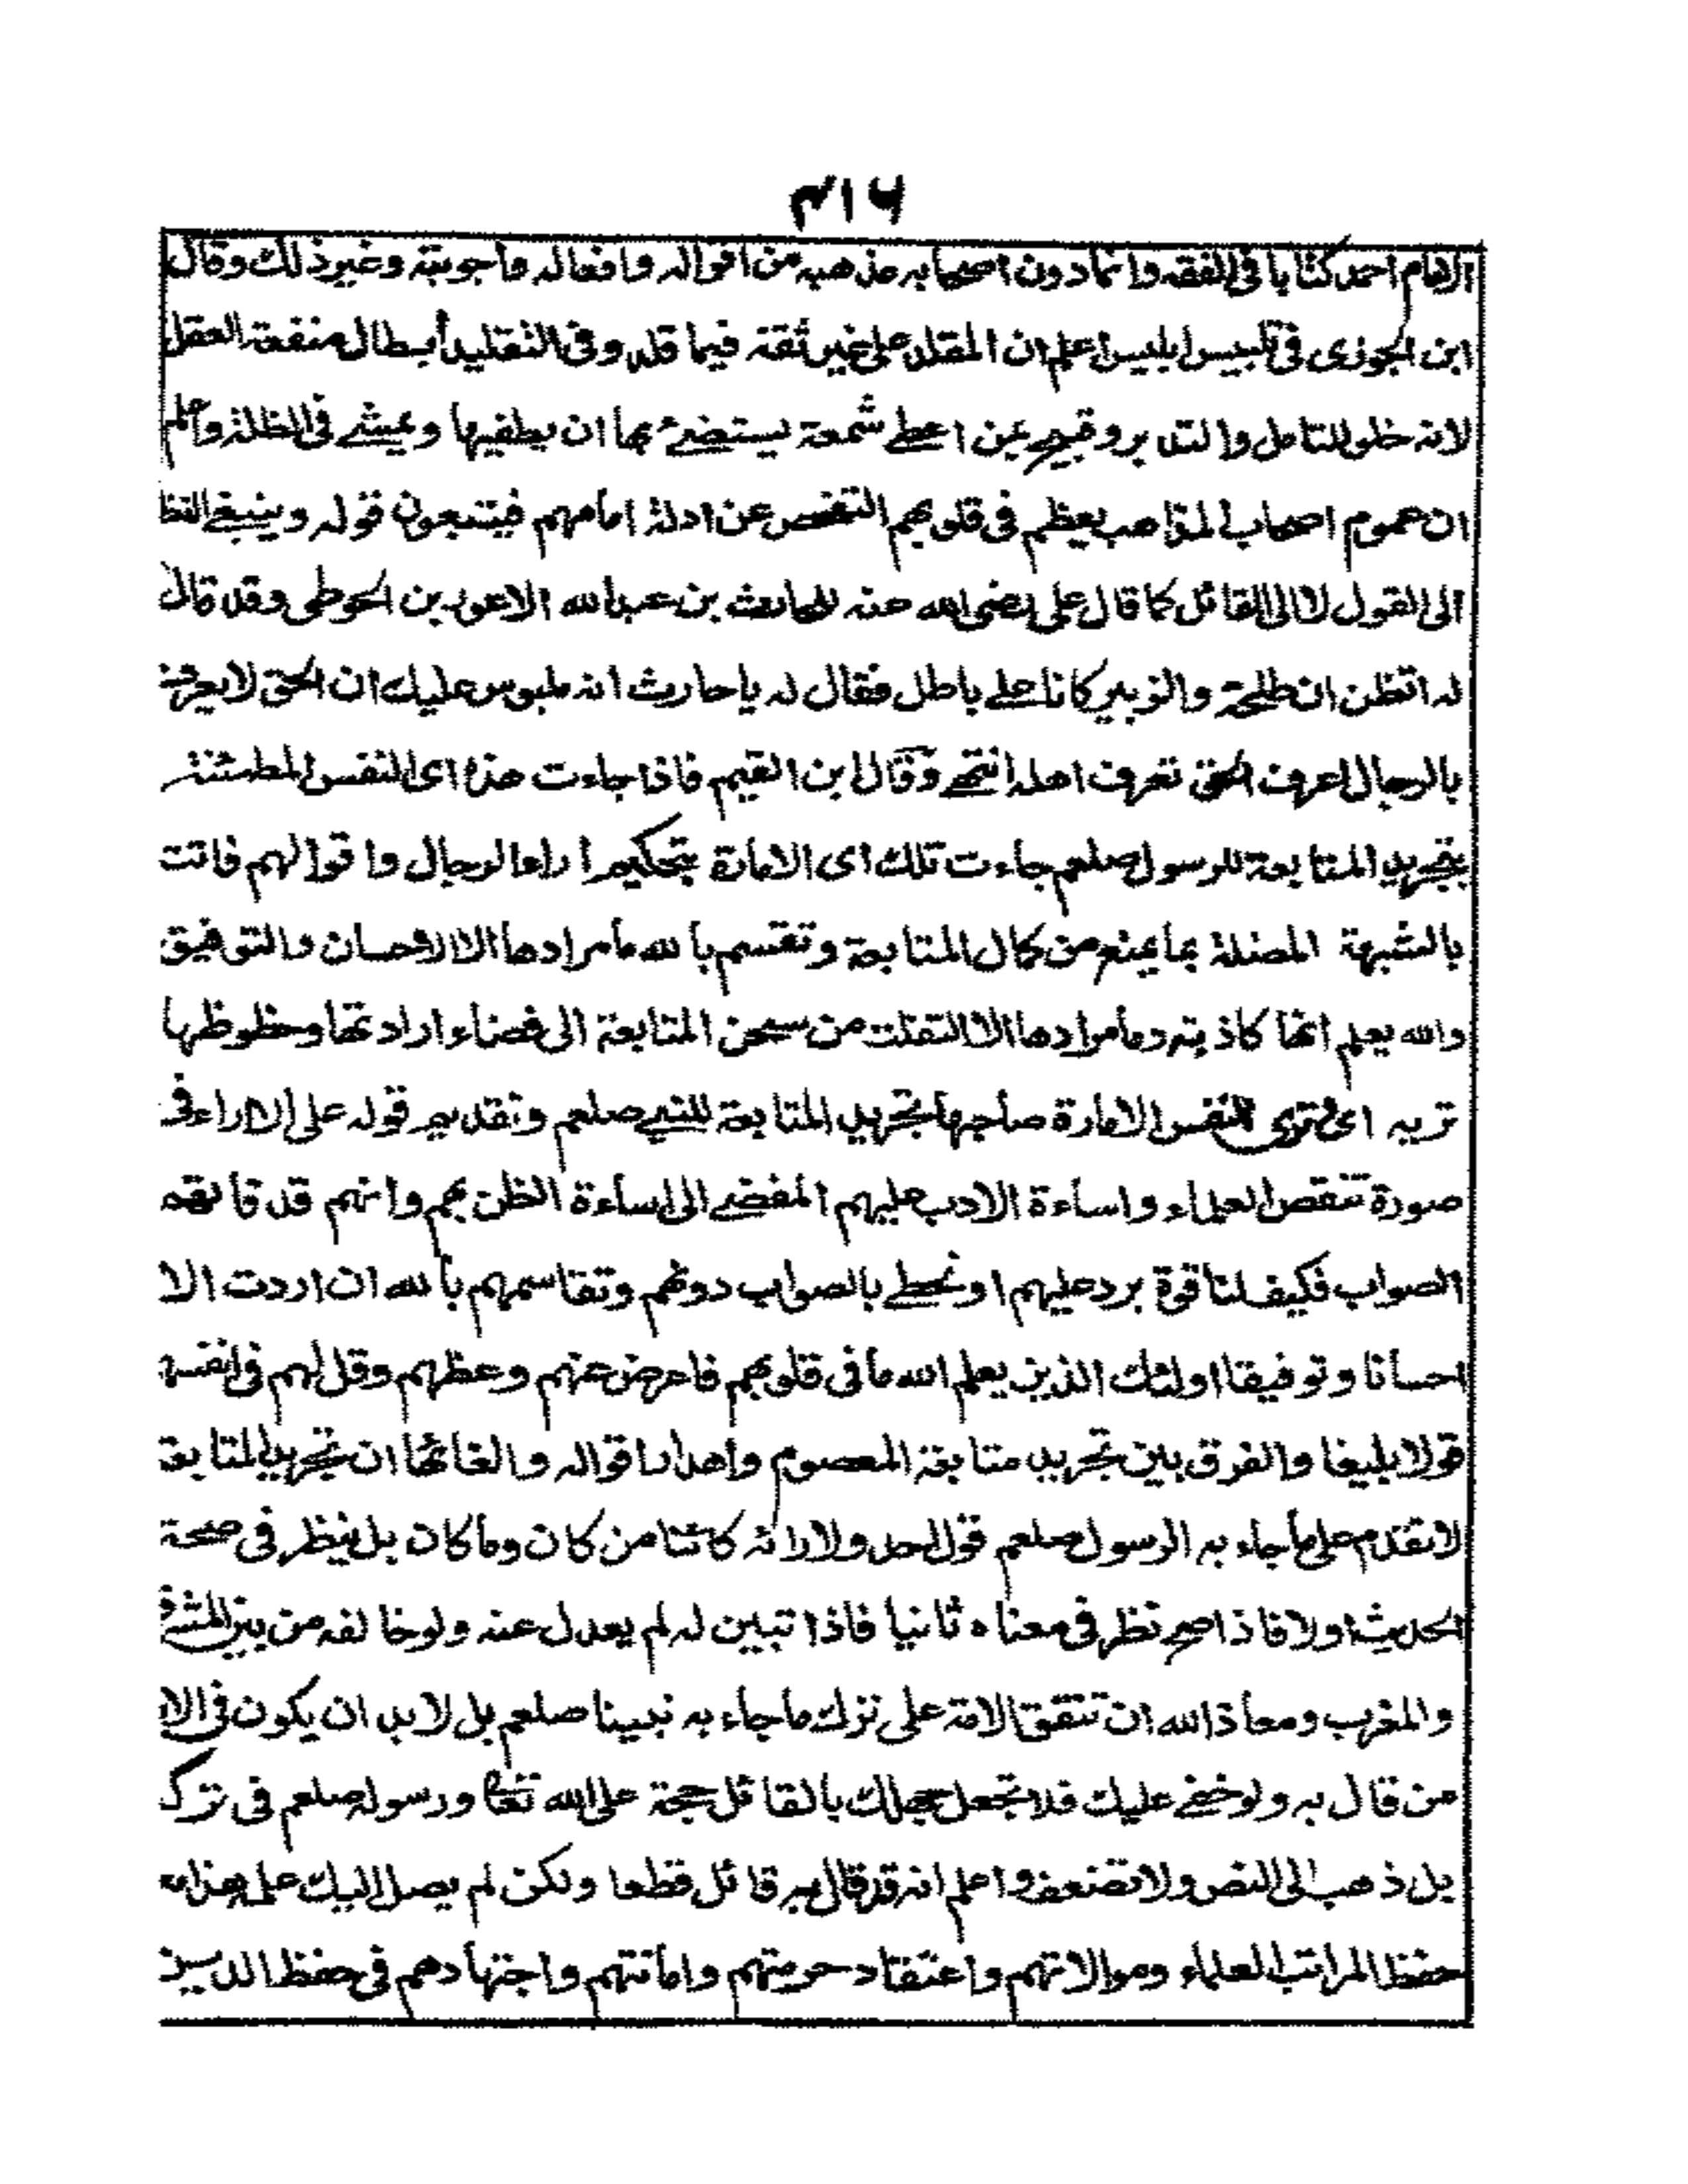 ۴۱۶
الامام احمد كتابا فى الفقه وانما دون اصحابه مذهبه من اقواله وافعاله واجوبته وغير ذلك وقال
ابن الجوزى فى تلبيس ابليس اعلم ان المقلد على غير ثقة فيما قلد وفى التقليد أبطال منفعة العقل
لانه خلق للتامل والتدبر وقبيح عن اعطے شمعة يستضئ بها ان يطفيها ويمشے فى الظلمة واعلم
ان عموم اصحاب المذاهب يعظم فى قلوبهم التفحص عن ادلة امامهم فيتبعون قوله وينبغے النظ
الى القول لا الى القائل كما قال على رضى الله عنه للحارث بن عبدالله الاعور بن الحوطى وقد قال
له اتظن ان طلحة والزبير كانا علے باطل فقال له يا حارث انه ملبوس عليك ان الحق لا يعرف
بالرجال اعرف الحق تعرف اهله انتهے وقال ابن القيم فاذا جاءت هذه اى النفس المطمئنة
بتجريد المتابعة للرسول صلعم جاءت تلك اى الامارة بتحكيم اراء الرجال واقوالهم فاتت
بالشبهة المضلة بما يمنع من كمال المتابعة وتقسم بالله ما مرادها الا الاحسان والتوفيق
والله يعلم انها كاذبة وما مرادها الا التفلت من سجن المتابعة الى فضاء ارادتها وحظوظها
تريه اى ترى النفس الامارة صاحبها تجريد المتابعة للنبے صلعم وتقديم قوله على الاراء فى
صورة تنقص العلماء واساءة الادب عليهم المفضے الى اساءة الظن بهم وانهم قد فاتهم
الصواب فكيف لنا قوة برد عليهم او نحطے بالصواب دونهم وتقاسمهم بالله ان اردت الا
احسانا وتوفيقا اولئك الذين يعلم الله ما فى قلوبهم فاعرض عنهم وعظهم وقل لهم فى انفسه
قولا بليغا والفرق بين تجريد متابعة المعصوم واهدار اقواله والغائها ان تجريد المتابعة
لا تقدم على ما جاء به الرسول صلعم قول احد ولا رائه كائنا من كان وما كان بل ينظر فى صحة
الحديث اولا فاذا صح نظر فى معناه ثانيا فاذا تبين له لم يعدل عنه ولو خالفه من بين المشرق
والمغرب ومعاذ الله ان تتفق الامة على ترك ما جاء به نبينا صلعم بل لا بد ان يكون فى الا
من قال به ولو خفے عليك فلا تجعل جهلك بالقائل حجة على الله تعالى ورسوله صلعم فى ترك
بل ذهب الى النص ولا تضعف واعلم انه قد قال به قائل قطعا ولكن لم يصل اليك على هذا مع
حفظ المراتب العلماء وموالاتهم واعتقاد حرمتهم وامانتهم واجتهادهم فى حفظ الدين